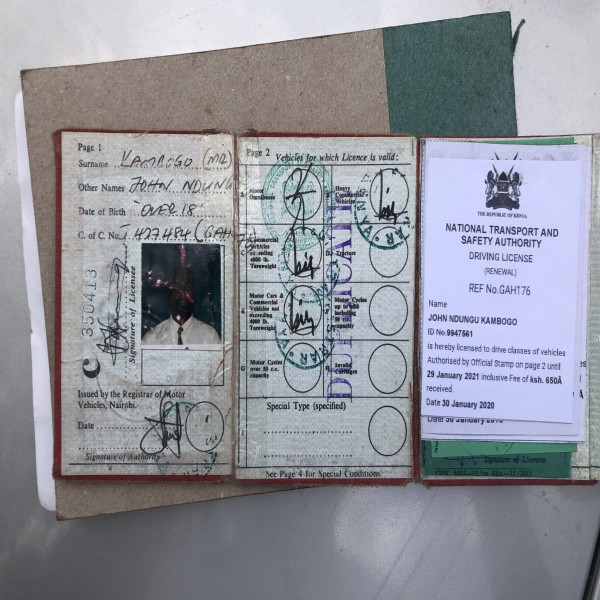 Page 1
Surname KAMBOGO (MR)
Other Names JOHN NDUNG
Date of Birth 'OVER 18'
C. of C. No. 427484 (GAH
C 350413
Signature of Licensee
Issued by the Registrar of Motor
Vehicles, Nairobi.
Date
Signature of Authority
Page 2 Vehicles for which Licence is valid:
Motor
Omnibuses
Heavy
Commercial
Vehicles
Commercial
Vehicles
exceeding
4000 lb.
Tareweight
Tractors
Motor Cars &
Commercial
Vehicles not
exceeding
4000 lb.
Tareweight
Motor Cycles
up to and
including
50 c.c.
capacity
Motor Cycles
over 50 c.c.
capacity
Invalid
Carriages
DUPLICATE
Special Type (specified)
See Page 4 for Special Conditions.
THE REPUBLIC OF KENYA
NATIONAL TRANSPORT AND
SAFETY AUTHORITY
DRIVING LICENSE
(RENEWAL)
REF No.GAH176
Name
JOHN NDUNGU KAMBOGO
ID No.9947561
is hereby licensed to drive classes of vehicles
Authorised by Official Stamp on page 2 until
29 January 2021 inclusive Fee of ksh. 650Â
received.
Date 30 January 2020
Signature of Licensee